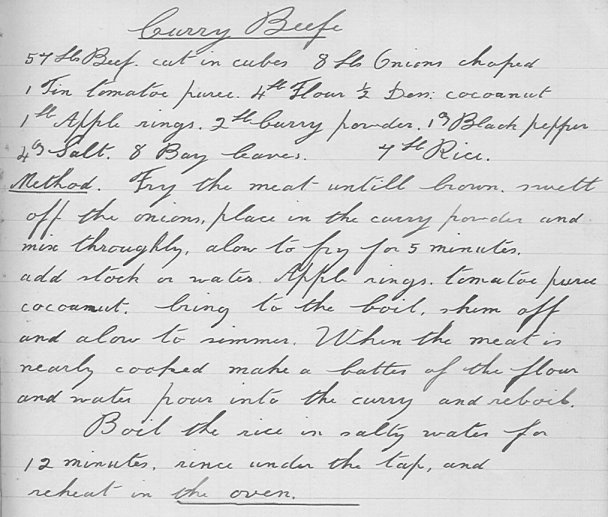 Curry Beefe
54 lbs Beef. cut in cubes 8 lbs Onions choped
1 Tin tomatoe puree. 4 lb Flour ½ Des: cocoanut
1 lb Apple rings. 2 lb Curry powder. 1 oz Black pepper
4 oz Salt. 8 Bay leaves. 4 lb Rice.
Method. Fry the meat untill brown. swett
off the onions, place in the curry powder and
mix throughly, alow to fry for 5 minutes.
add stock or water. Apple rings. tomatoe puree
cocoanut. bring to the boil, skim off
and alow to simmer. When the meat is
nearly cooked make a batter of the flour
and water pour into the curry and reboil.
Boil the rice in salty water for
12 minutes, rince under the tap, and
reheat in the oven.